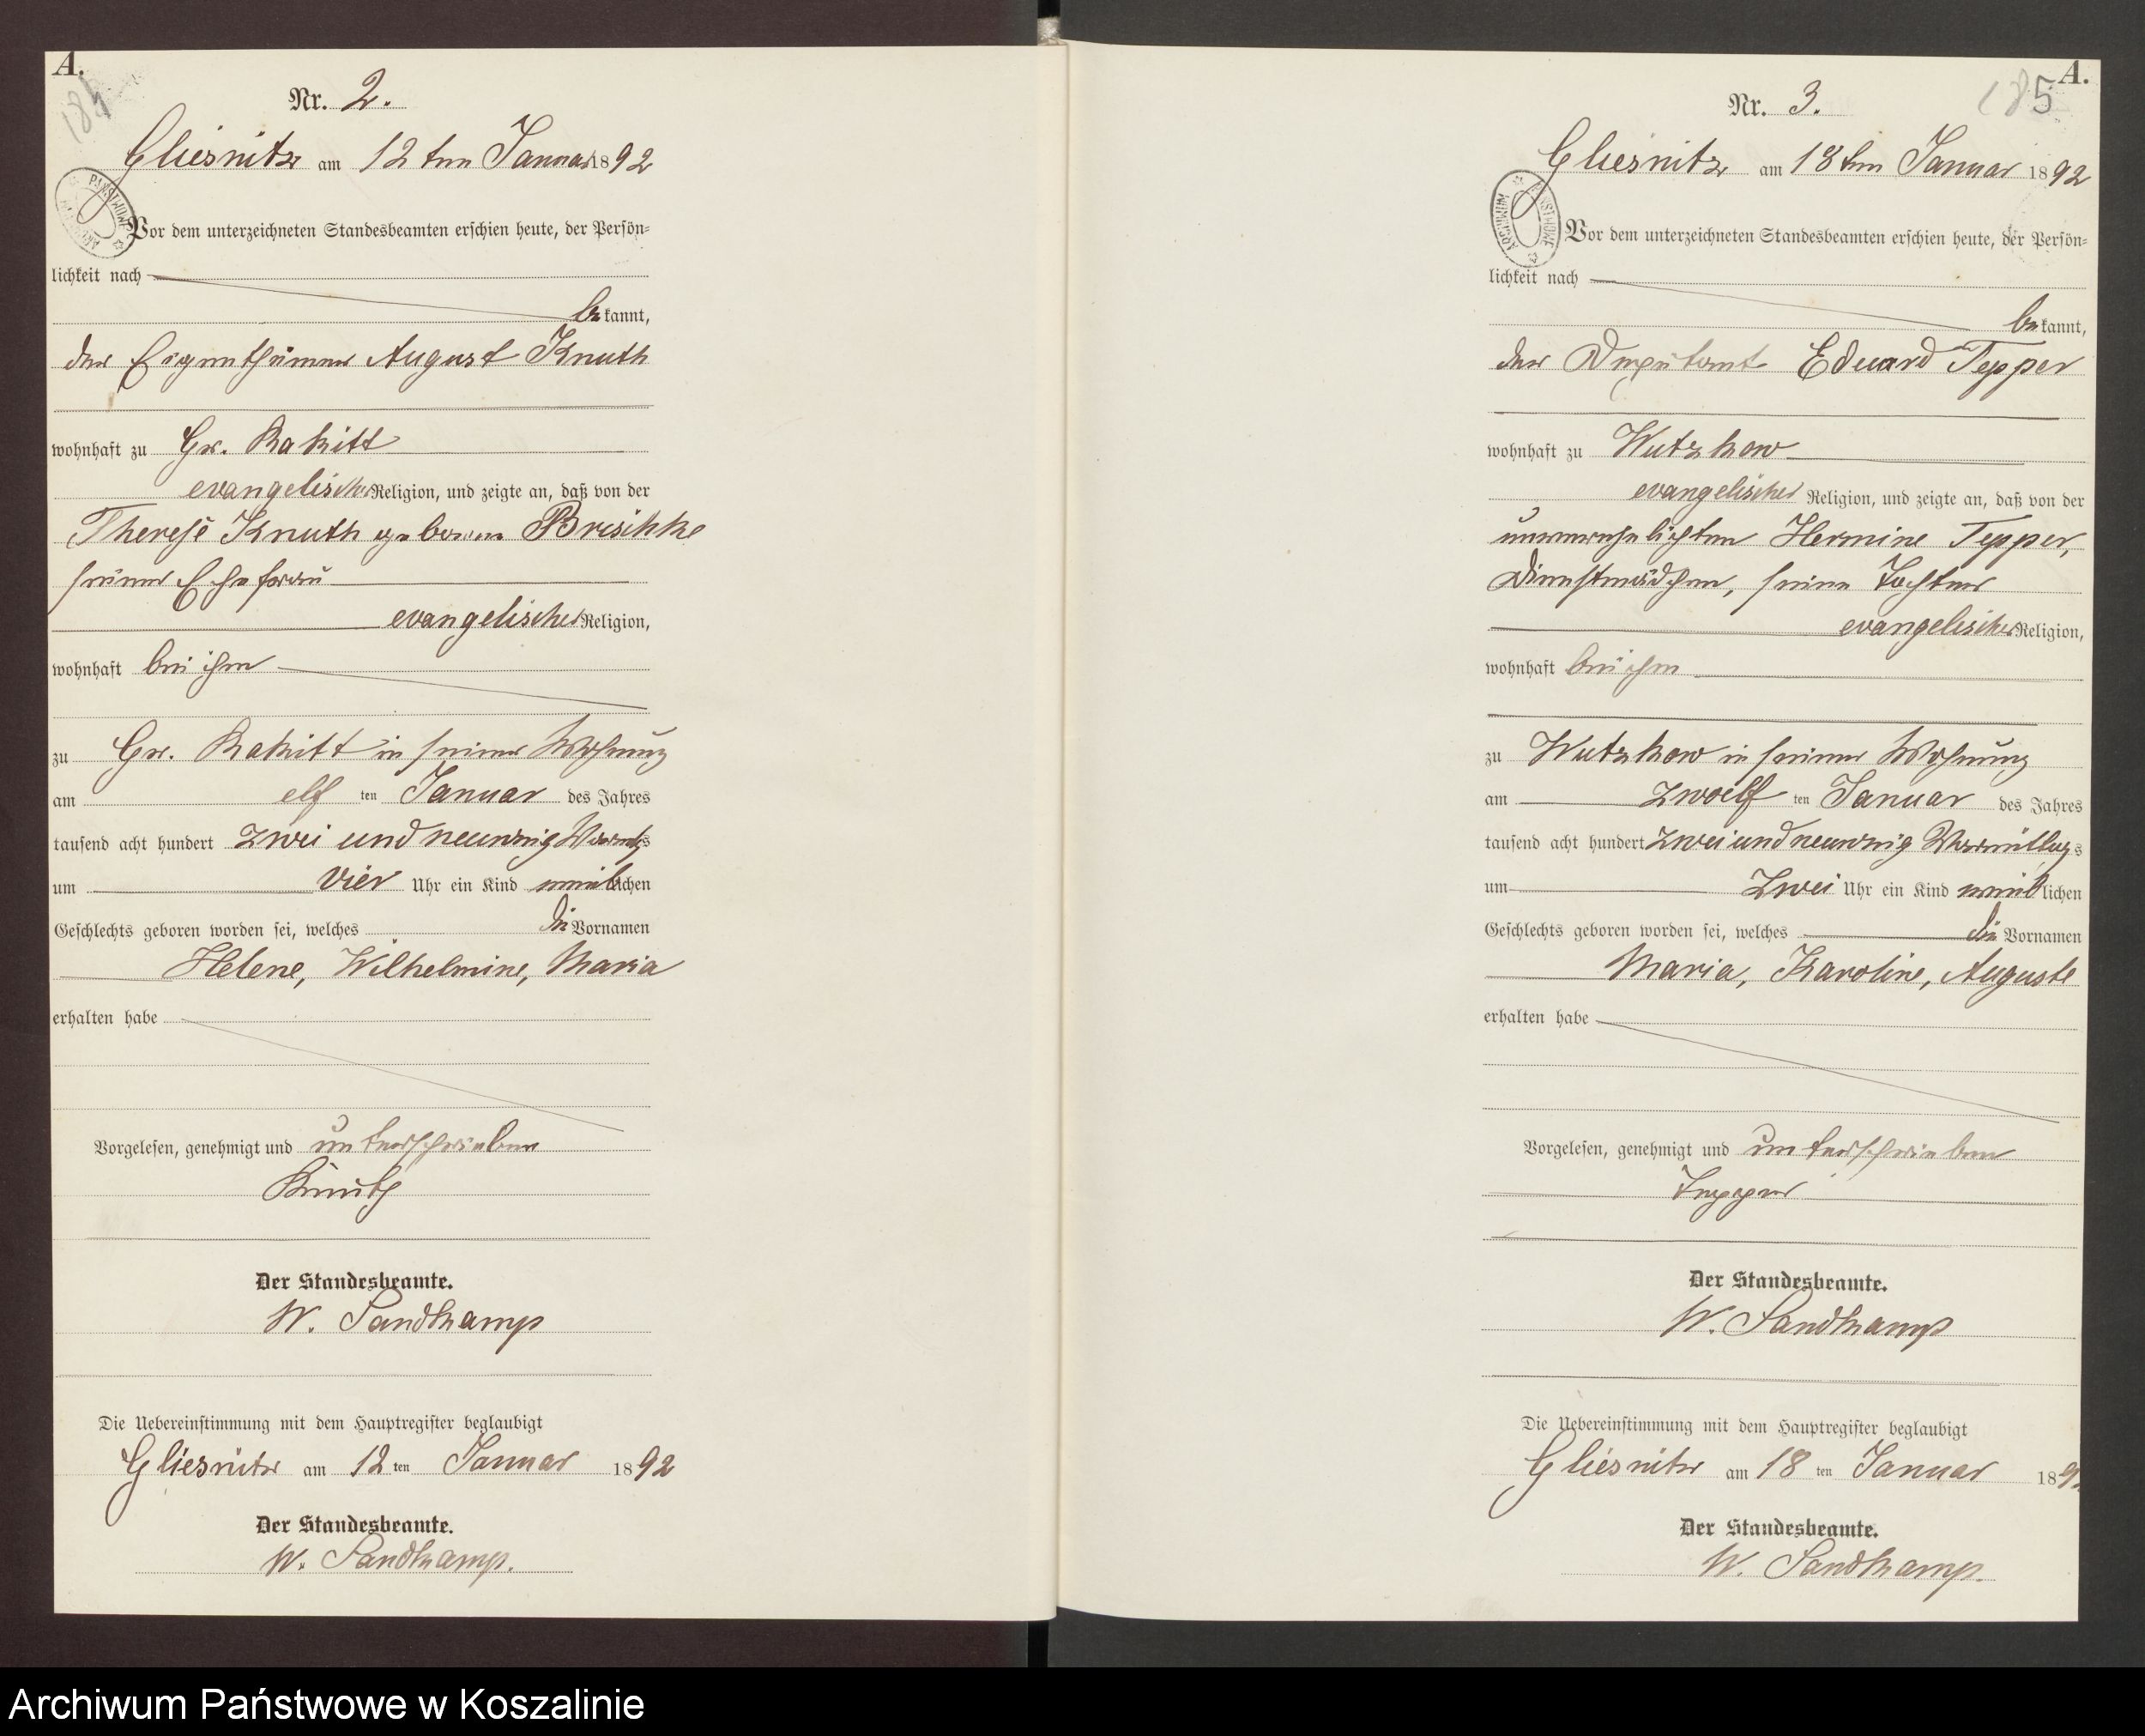 A.
184
Nr. 2.
Gliesnitz am 12ten Januar 1892
Vor dem unterzeichneten Standesbeamten erschien heute, der Persön=
lichkeit nach
bekannt,
der Eigenthümer August Knuth
wohnhaft zu Gr. Rakitt
evangelischer Religion, und zeigte an, daß von der
Therese Knuth geborene Brischke
seiner Ehefrau
evangelischer Religion,
wohnhaft bei ihm
zu Gr. Rakitt in seiner Wohnung
am elf ten Januar des Jahres
tausend acht hundert zwei und neunzig Vormittags
um vier Uhr ein Kind weiblichen
Geschlechts geboren worden sei, welches die Vornamen
Helene, Wilhelmine, Maria
erhalten habe
Vorgelesen, genehmigt und unterschrieben
Knuth
Der Standesbeamte.
W. Sandkamp
Die Uebereinstimmung mit dem Hauptregister beglaubigt
Gliesnitz am 12 ten Januar 1892
Der Standesbeamte.
W. Sandkamp.
ARCHIWUM PAŃSTWOWE
A.
185
Nr. 3.
Gliesnitz am 18ten Januar 1892
Vor dem unterzeichneten Standesbeamten erschien heute, der Persön=
lichkeit nach
bekannt,
der Deputant Eduard Tepper
wohnhaft zu Wutzkow
evangelischer Religion, und zeigte an, daß von der
unverehelichten Hermine Tepper,
Dienstmädchen, seine Tochter
evangelischer Religion,
wohnhaft bei ihm
zu Wutzkow in seiner Wohnung
am zwoelf ten Januar des Jahres
tausend acht hundert zwei und neunzig Vormittags
um zwei Uhr ein Kind weiblichen
Geschlechts geboren worden sei, welches die Vornamen
Maria, Karoline, Auguste
erhalten habe
Vorgelesen, genehmigt und unterschrieben
Tepper
Der Standesbeamte.
W. Sandkamp
Die Uebereinstimmung mit dem Hauptregister beglaubigt
Gliesnitz am 18 ten Januar 189
Der Standesbeamte.
W. Sandkamp.
ARCHIWUM PAŃSTWOWE
Archiwum Państwowe w Koszalinie